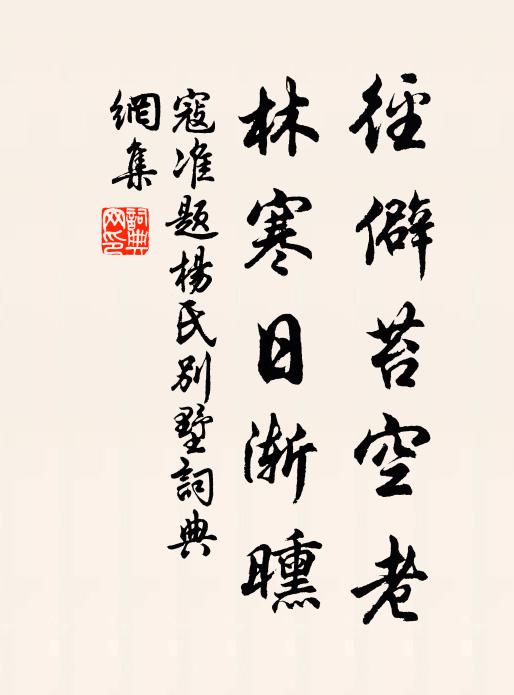 徑僻苔空老
林寒日漸曛
寇准題楊氏別墅詞典
網集
詞典
网印